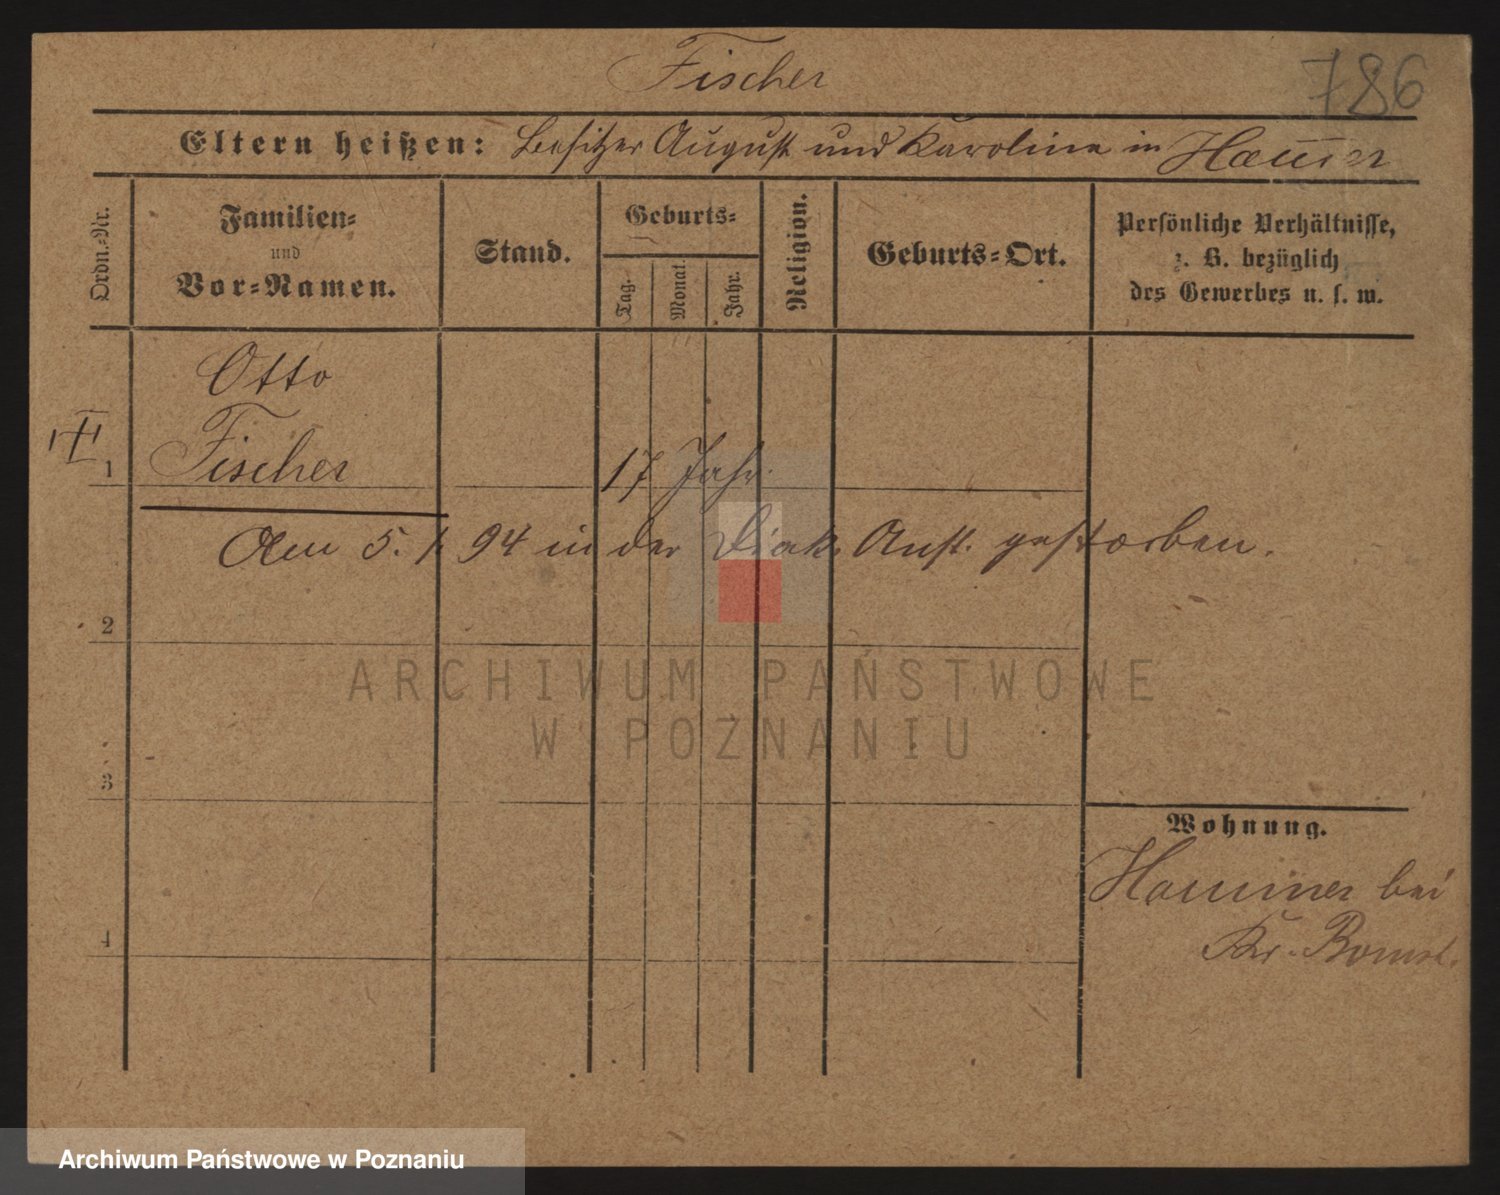 Fischer
786
Eltern heißen: Besitzer August und Karoline in
Ordn.-Nr.
Familien-
und
Vor-Namen.
Stand.
Geburts-
Tag.
Monat.
Jahr.
Religion.
Geburts-Ort.
Persönliche Verhältnisse,
z. B. bezüglich
des Gewerbes u. s. w.
Otto
Fischer
1
17 Jahr.
Am 5. 94 in der Diak. Anst. gestorben.
2
ARCHIWUM PAŃSTWOWE
W POZNANIU
3
Wohnung.
bei
4
Kr. Bomst.
Archiwum Państwowe w Poznaniu